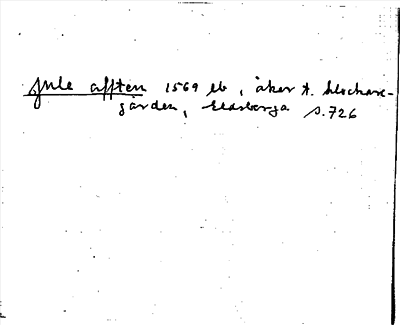 Jule afften 1569 lb, åker t. klockare-
gården, Eldsberga s. 726